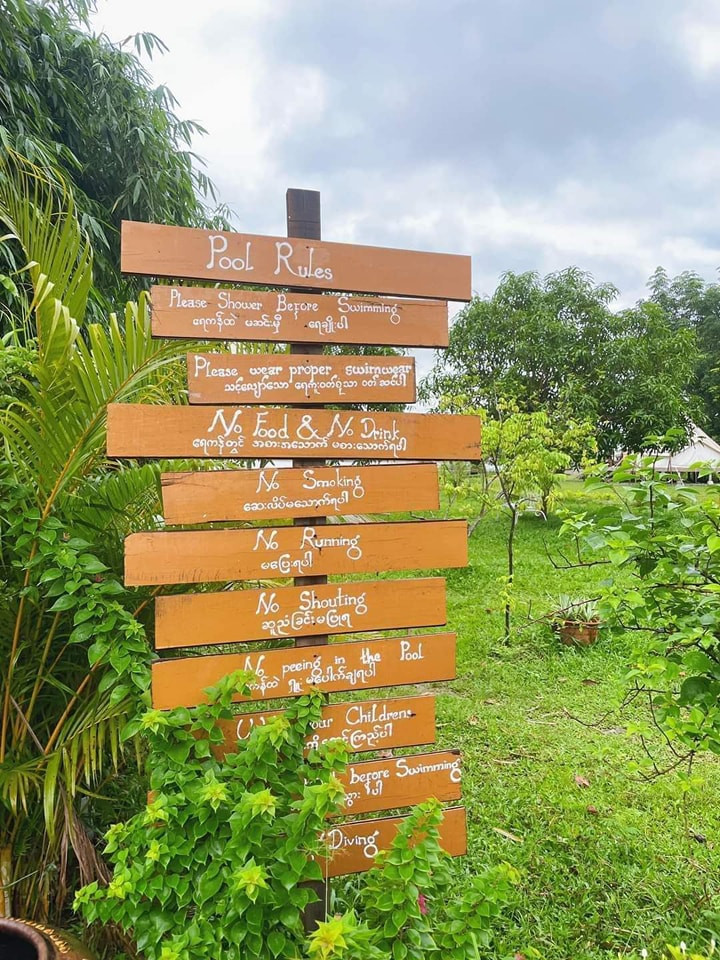 Pool Rules
Please Shower Before Swimming
ရေကန်ထဲ မဆင်းမှီ ရေချိုးပါ
Please wear proper swimwear
သင့်လျော်သော ရေကူးဝတ်ရုံသာ ဝတ်ဆင်ပါ
No Food & No Drink
ရေကန်တွင် အစားအသောက် မစားရပါ
No Smoking
ဆေးလိပ်မသောက်ရပါ
No Running
မပြေးရပါ
No Shouting
ဆူညံခြင်းမပြုရ
No peeing in the Pool
ရေကန်ထဲ ရှူးမပေါက်ချရပါ
your Children
ကြည့်ပါ
before Swimming
သွားပါ
Diving